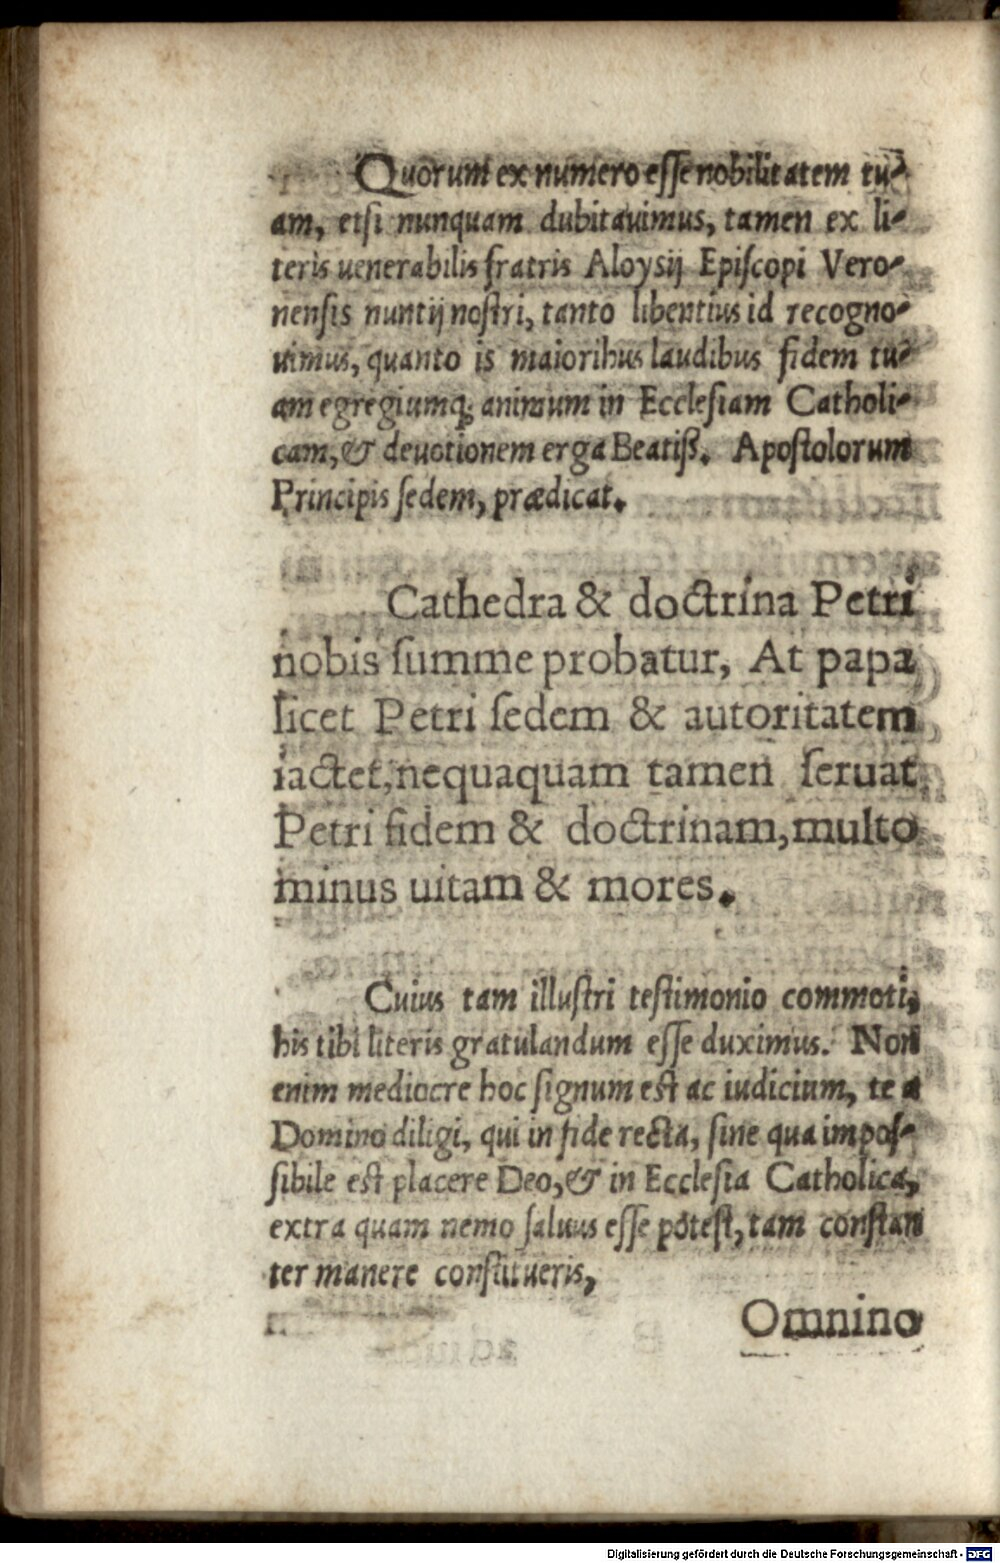 Quorum ex numero eſſe nobilitatem tu-
am, etſi nunquam dubitauimus, tamen ex li-
teris uenerabilis fratris Aloyſij Epiſcopi Vero-
nenſis nuntij noſtri, tanto libentius id recogno-
uimus, quanto is maioribus laudibus fidem tu-
am egregiumq; animum in Eccleſiam Catholi-
cam, & deuotionem erga Beatiß. Apoſtolorum
Principis ſedem, prædicat.
Cathedra & doctrina Petri
nobis ſumme probatur, At papa
licet Petri ſedem & autoritatem
iactet, nequaquam tamen ſeruat
Petri fidem & doctrinam, multo
minus uitam & mores.
Cuius tam illuſtri teſtimonio commoti,
his tibi literis gratulandum eſſe duximus. Non
enim mediocre hoc ſignum eſt ac iudicium, te a
Domino diligi, qui in fide recta, ſine qua impoſ-
ſibile eſt placere Deo, & in Eccleſia Catholica,
extra quam nemo ſaluus eſſe poteſt, tam conſtan
ter manere conſtitueris,
Omnino
Digitalisierung gefördert durch die Deutsche Forschungsgemeinschaft - DFG